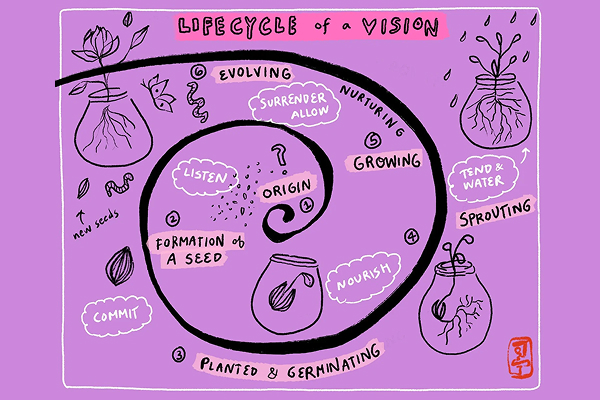 LIFECYCLE of a VISION
6 EVOLVING
SURRENDER
ALLOW
NURTURING
5
GROWING
LISTEN
?
ORIGIN
1
TEND &
WATER
new seeds
2
FORMATION of
A SEED
SPROUTING
4
NOURISH
COMMIT
3 PLANTED & GERMINATING